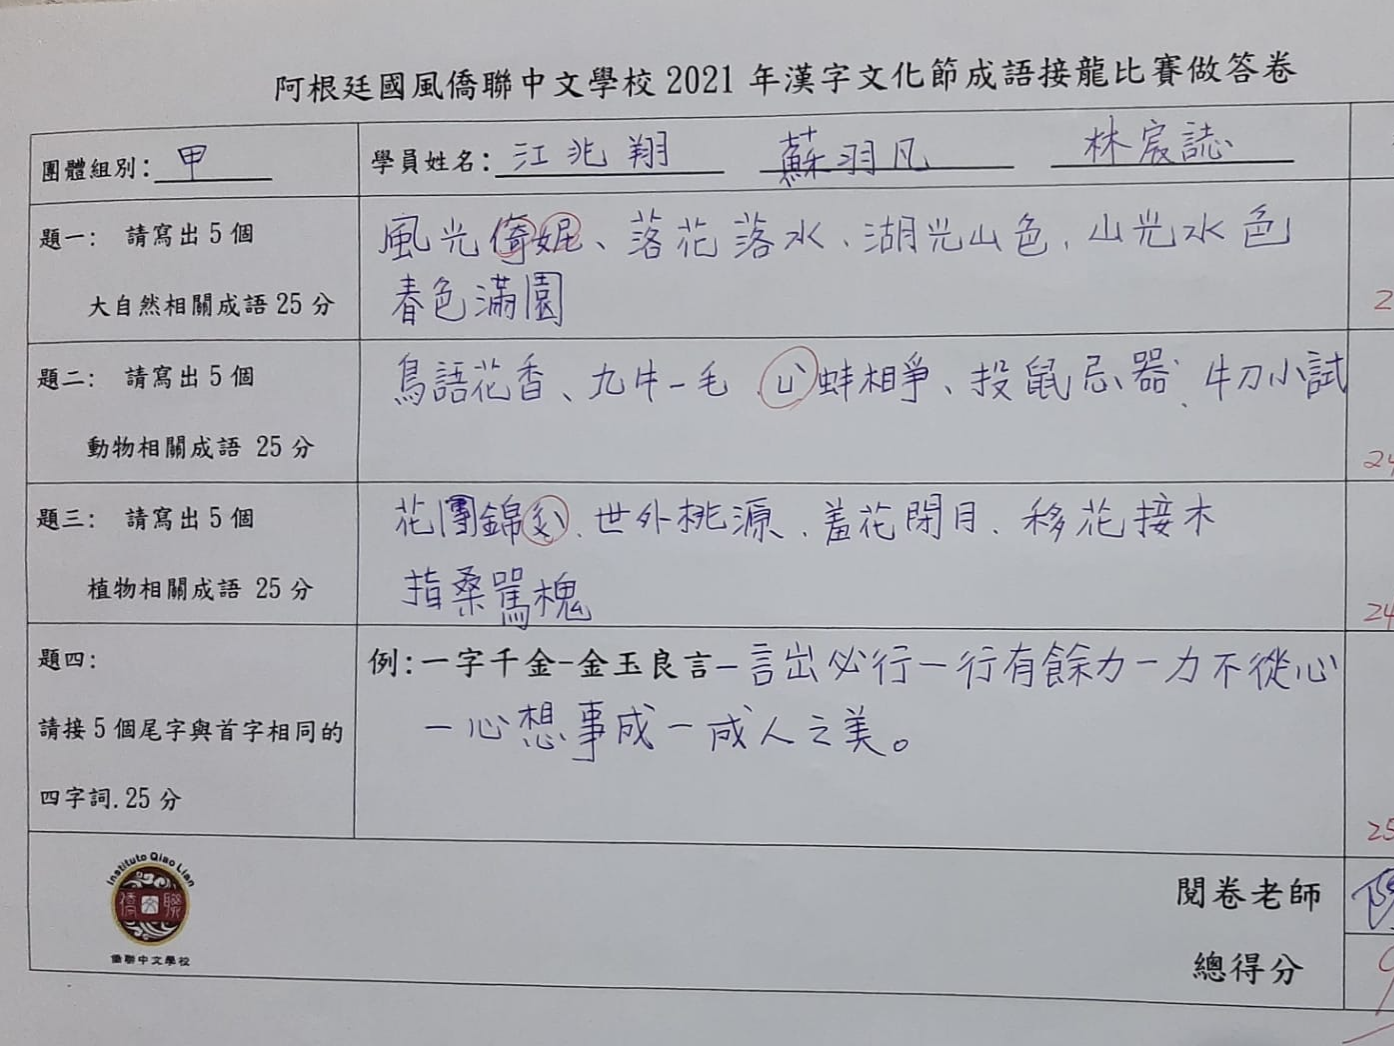 阿根廷國風僑聯中文學校 2021 年漢字文化節成語接龍比賽做答卷
團體組別: 甲
學員姓名: 江兆翔 蘇羽凡 林宸誌
題一: 請寫出 5 個
大自然相關成語 25 分
風光倚妮、落花落水、湖光山色、山光水色
春色滿園
2
題二: 請寫出 5 個
動物相關成語 25 分
鳥語花香、九牛一毛、蚌相爭、投鼠忌器、牛刀小試
24
題三: 請寫出 5 個
植物相關成語 25 分
花團錦、世外桃源、羞花閉月、移花接木
指桑罵槐
24
題四:
請接 5 個尾字與首字相同的
四字詞. 25 分
例:一字千金-金玉良言-言出必行-行有餘力-力不從心
-心想事成-成人之美。
25
Instituto Qiao Lian
僑聯
文
僑聯中文學校
閱卷老師
總得分
9